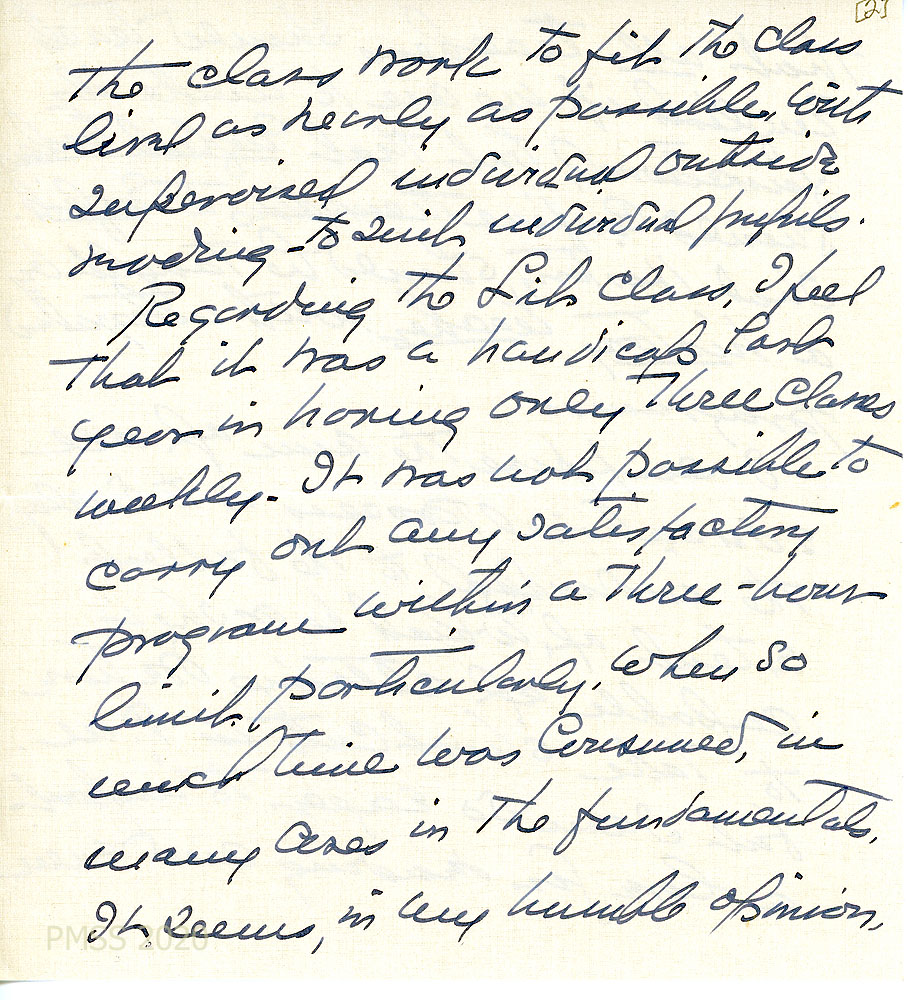 [2]
the class work to fit the class
level as nearly as possible, with
supervised individual outside
reading - to suit individual pupils.
Regarding the Lit Class, I feel
that it was a handicap last
year in having only three classes
weekly. It was not possible to
carry out any satisfactory
program within a three-hour
limit, particularly, when so
much time was consumed, in
many cases in the fundamentals.
It seems, in my humble opinion,
PMSS 2020